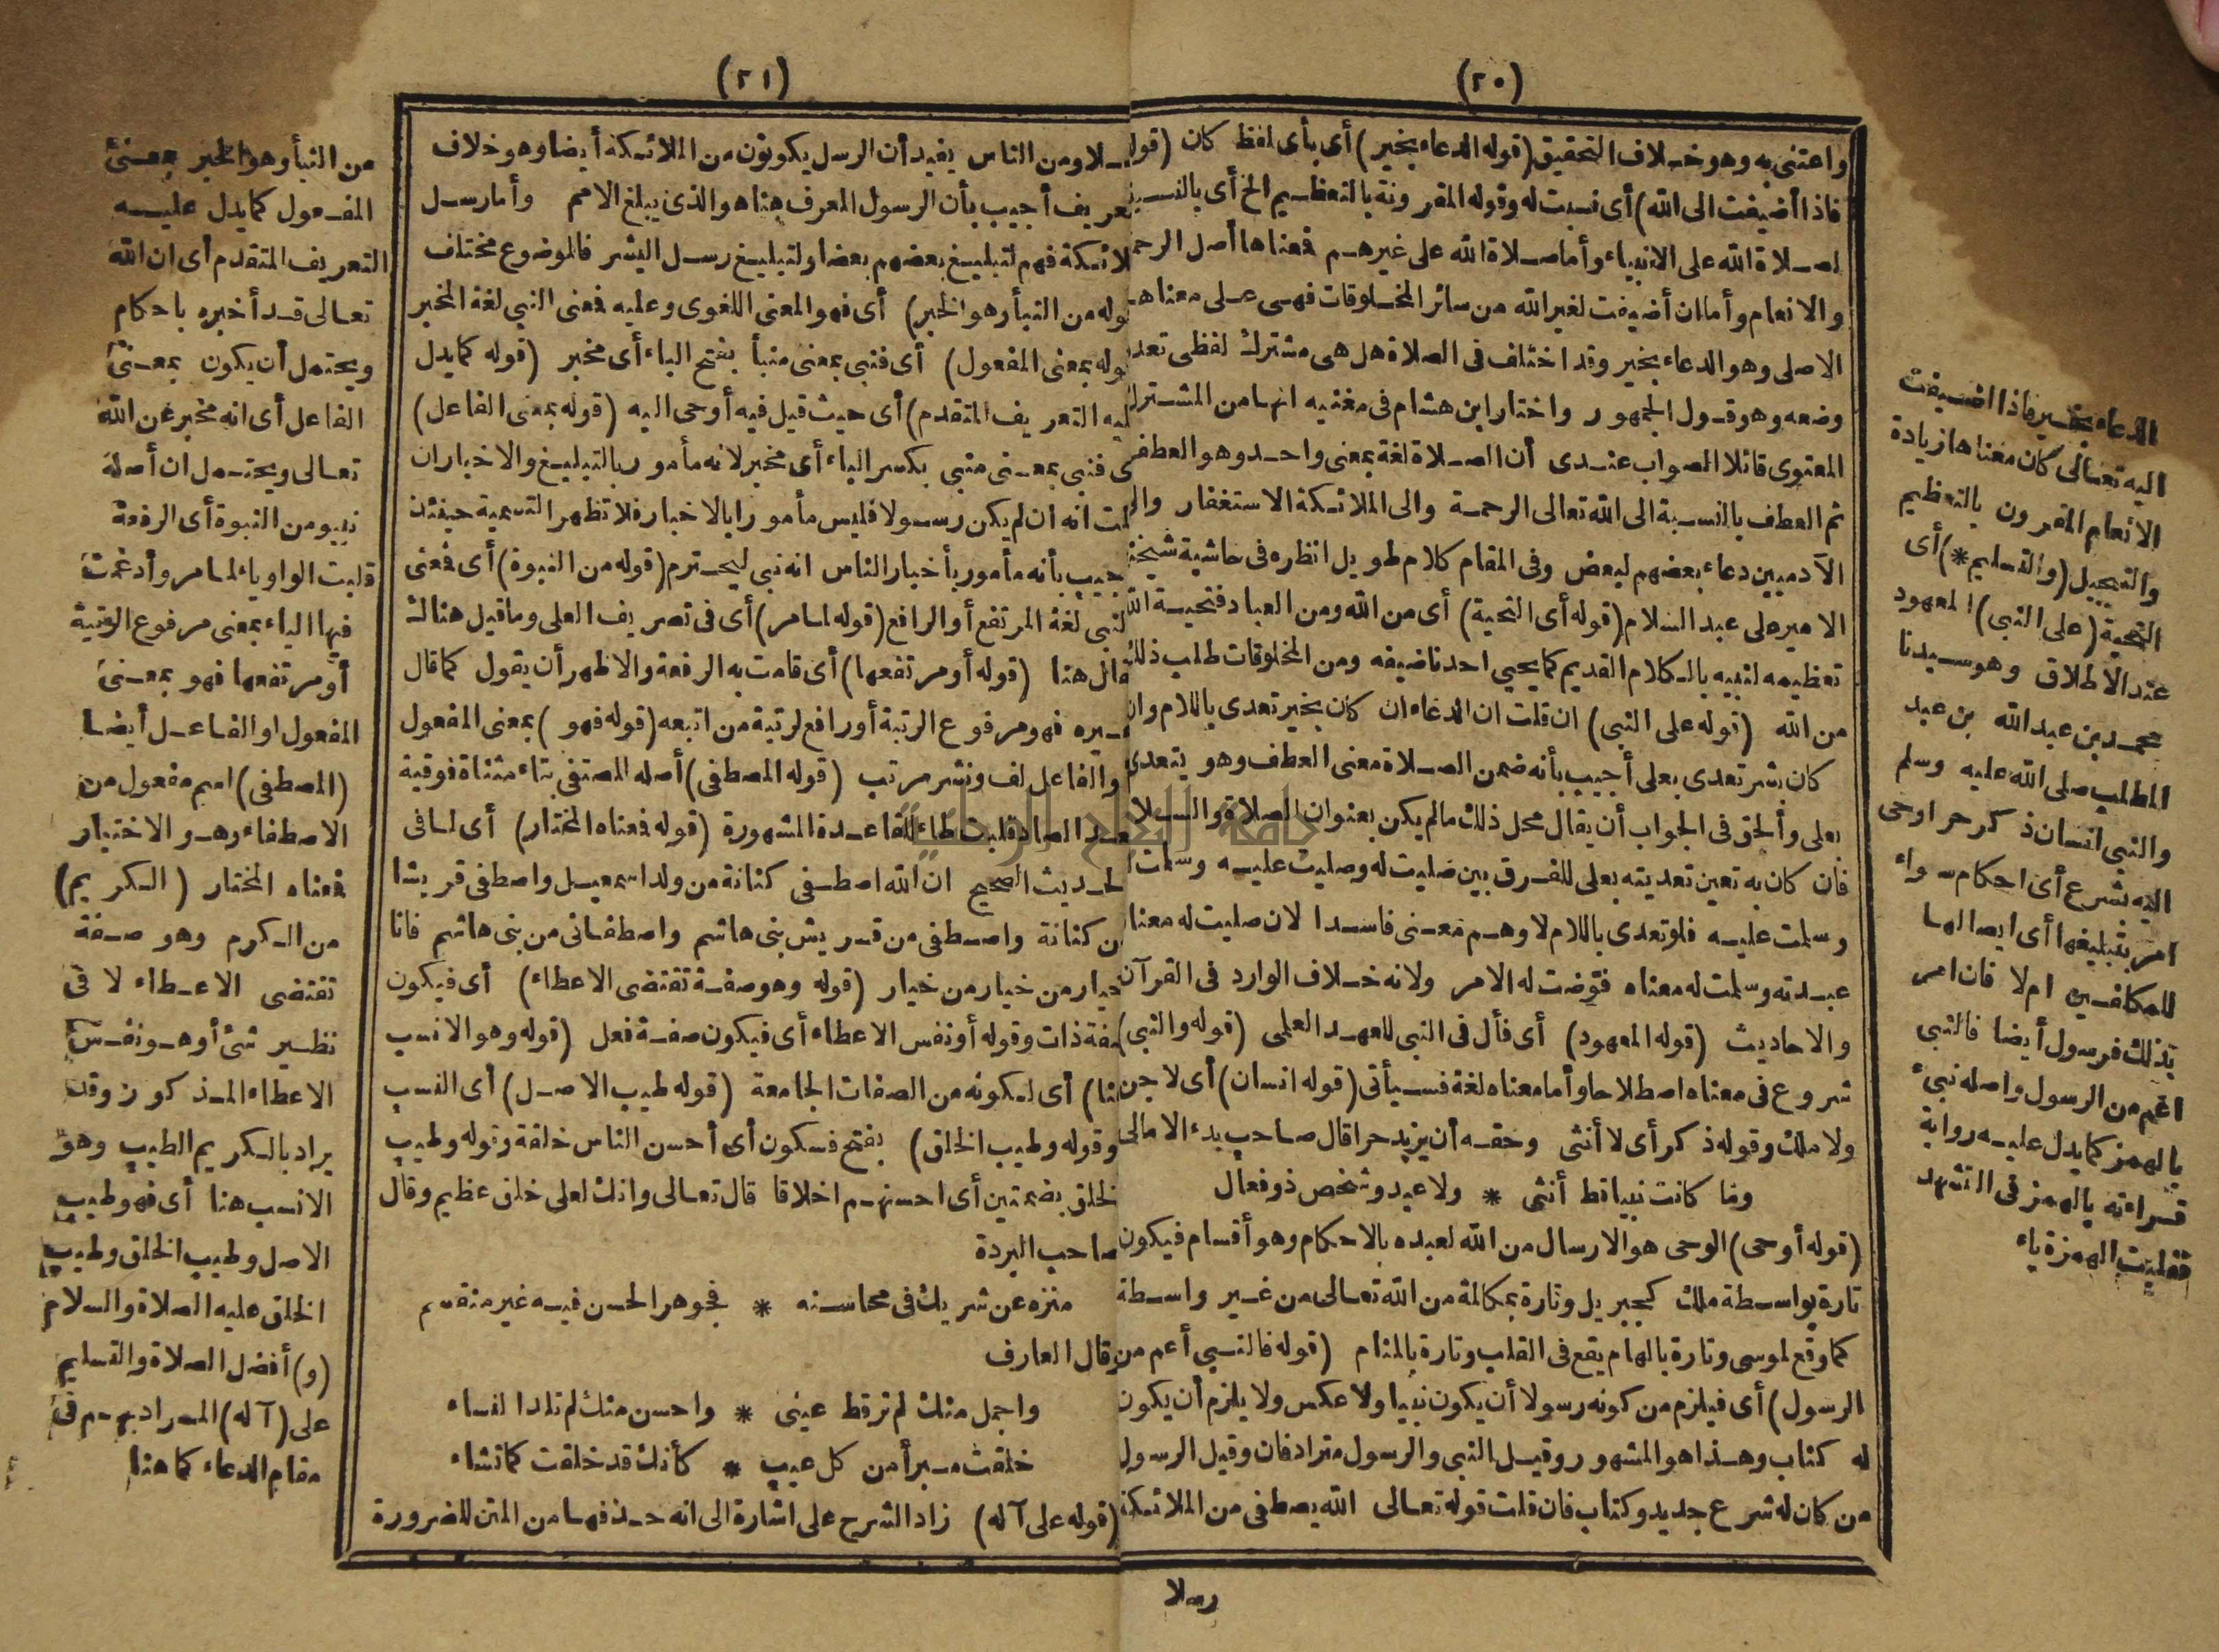 (٢٠)
واعتنى به وهو خلاف التحقيق (قوله الدعاء بخير) أى بأى لفظ كان (قوله
فاذا أضيفت الى الله) أى نسبت له وقوله المقرونة بالتعظيم الخ أى بالنسبة
لصلاة الله على الانبياء وأما صلاة الله على غيرهم فمعناها أصل الرحمة
والانعام وأما ان أضيفت لغير الله من سائر المخلوقات فهى على معناها
الاصلى وهو الدعاء بخير وقد اختلف فى الصلاة هل هى مشترك لفظى تعدد
وضعه وهو قول الجمهور واختار ابن هشام فى مغنيه انها من المشترك
المعنوى قائلا الصواب عندى أن الصلاة لغة بمعنى واحد وهو العطف
ثم العطف بالنسبة الى الله تعالى الرحمة والى الملائكة الاستغفار والى
الآدميين دعاء بعضهم لبعض وفى المقام كلام طويل انظره فى حاشية شيخنا
الامير على عبد السلام (قوله أى التحية) أى من الله ومن العباد فتحية الله
تعظيمه لنبيه بالكلام القديم كما يحيي احدنا ضيفه ومن المخلوقات طلب ذلك
من الله (قوله على النبى) ان قلت ان الدعاء ان كان بخير تعدى باللام وان
كان بشر تعدى بعلى أجيب بأنه ضمن الصلاة معنى العطف وهو يتعدى
بعلى وألحق فى الجواب أن يقال محل ذلك ما لم يكن بعنوان الصلاة والسلام
فان كان به تعين تعديته بعلى للفرق بين صليت له وصليت عليه وسلمت له
وسلمت عليه فلو تعدى باللام لاوهم معنى فاسدا لان صليت له معناه
عبدته وسلمت له معناه فوّضت له الامر ولانه خلاف الوارد فى القرآن
والاحاديث (قوله المعهود) أى فأل فى النبى للعهد العلمى (قوله والنبى)
شروع فى معناه اصطلاحا وأما معناه لغة فسيأتى (قوله انسان) أى لا جن
ولا ملك وقوله ذكر أى لا أنثى وحقه أن يزيد حرا قال صاحب بدء الامالى
وما كانت نبيا قط أنثى * ولا عبد وشخص ذو فعال
(قوله أوحى) الوحى هو الارسال من الله لعبده بالاحكام وهو أقسام فيكون
تارة بواسطة ملك كجبريل وتارة بمكالمة من الله تعالى من غير واسطة
كما وقع لموسى وتارة بالهام يقع فى القلب وتارة بالمنام (قوله فالنبى أعم من
الرسول) أى فيلزم من كونه رسولا أن يكون نبيا ولا عكس ولا يلزم أن يكون
له كتاب وهذا هو المشهور وقيل النبى والرسول مترادفان وقيل الرسول
من كان له شرع جديد وكتاب فان قلت قوله تعالى الله يصطفى من الملائكة
رسلا
الدعاء بخير فاذا اضيفت
اليه تعالى كان معناها زيادة
الانعام المقرون بالتعظيم
والتبجيل (والتسليم*) أى
التحية (على النبى) المعهود
عند الاطلاق وهو سيدنا
محمد بن عبد الله بن عبد
المطلب صلى الله عليه وسلم
والنبى انسان ذكر حر اوحى
اليه بشرع أى احكام سواء
امر بتبليغها أى ايصالها
للمكلفين ام لا فان امر
بذلك فرسول أيضا فالنبى
اعم من الرسول واصله نبىء
بالهمز كما يدل عليه رواية
قراءته بالهمز فى التشهد
فقلبت الهمزة ياء
(٢١)
رسلا ومن الناس يفيد أن الرسل يكونون من الملائكة أيضا وهو خلاف
التعريف أجيب بأن الرسول المعرف هنا هو الذى يبلغ الامم وأما رسل
الملائكة فهم لتبليغ بعضهم بعضا ولتبليغ رسل البشر فالموضوع مختلف
(قوله من النبأ وهو الخبر) أى فهو المعنى اللغوى وعليه فمعنى النبى لغة المخبر
(قوله بمعنى المفعول) أى فنبى بمعنى منبأ بفتح الباء أى مخبر (قوله كما يدل
عليه التعريف المتقدم) أى حيث قيل فيه أوحى اليه (قوله بمعنى الفاعل)
أى فنبى بمعنى منبى بكسر الباء أى مخبر لانه مأمور بالتبليغ والاخبار ان
قلت انه ان لم يكن رسولا فليس مأمورا بالاخبار فلا تظهر التسمية حينئذ
أجيب بأنه مأمور بأخبار الناس انه نبى ليحترم (قوله من النبوة) أى فمعنى
النبى لغة المرتفع أو الرافع (قوله لمامر) أى فى تصريف العلى وما قيل هناك
يقال هنا (قوله أو مرتفعها) أى قامت به الرفعة والاظهر أن يقول كما قال
غيره فهو مرفوع الرتبة أو رافع لرتبة من اتبعه (قوله فهو) بمعنى المفعول
والفاعل لف ونشر مرتب (قوله المصطفى) أصله المصتفى بتاء مثناة فوقية
بعد الصاد قلبت طاء للقاعدة المشهورة (قوله فمعناه المختار) أى لما فى
الحديث الصحيح ان الله اصطفى كنانة من ولد اسمعيل واصطفى قريشا
من كنانة واصطفى من قريش بنى هاشم واصطفانى من بنى هاشم فانا
خيار من خيار من خيار (قوله وهو صفة تقتضى الاعطاء) أى فيكون
صفة ذات وقوله أو نفس الاعطاء أى فيكون صفة فعل (قوله وهو الانسب
هنا) أى لكونه من الصفات الجامعة (قوله طيب الاصل) أى النسب
وقوله وطيب الخلق) بفتح فسكون أى أحسن الناس خلقة وقوله وطيب
الخلق بضمتين أى احسنهم اخلاقا قال تعالى وانك لعلى خلق عظيم وقال
صاحب البردة
منزه عن شريك فى محاسنه * فجوهر الحسن فيه غير منقسم
وقال العارف
واجمل منك لم تر قط عينى * واحسن منك لم تلد النساء
خلقت مبرأ من كل عيب * كأنك قد خلقت كما تشاء
(قوله على آله) زاد الشرح على اشارة الى انه حذفها من المتن للضرورة
من النبأ وهو الخبر بمعنى
المفعول كما يدل عليه
التعريف المتقدم أى ان الله
تعالى قد أخبره باحكام
ويحتمل أن يكون بمعنى
الفاعل أى انه مخبر عن الله
تعالى ويحتمل ان أصله
نبيو من النبوة أى الرفعة
قلبت الواو ياء لمامر وأدغمت
فيها الياء بمعنى مرفوع الرتبة
أو مرتفعها فهو بمعنى
المفعول او الفاعل أيضا
(المصطفى) اسم مفعول من
الاصطفاء وهو الاختيار
فمعناه المختار (الكريم)
من الكرم وهو صفة
تقتضى الاعطاء لا فى
نظير شئ أو هو نفس
الاعطاء المذكور وقد
يراد بالكريم الطيب وهو
الانسب هنا أى فهو طيب
الاصل وطيب الخلق وطيب
الخلق عليه الصلاة والسلام
(و) أفضل الصلاة والتسليم
على (آله) المراد بهم فى
مقام الدعاء كما هنا